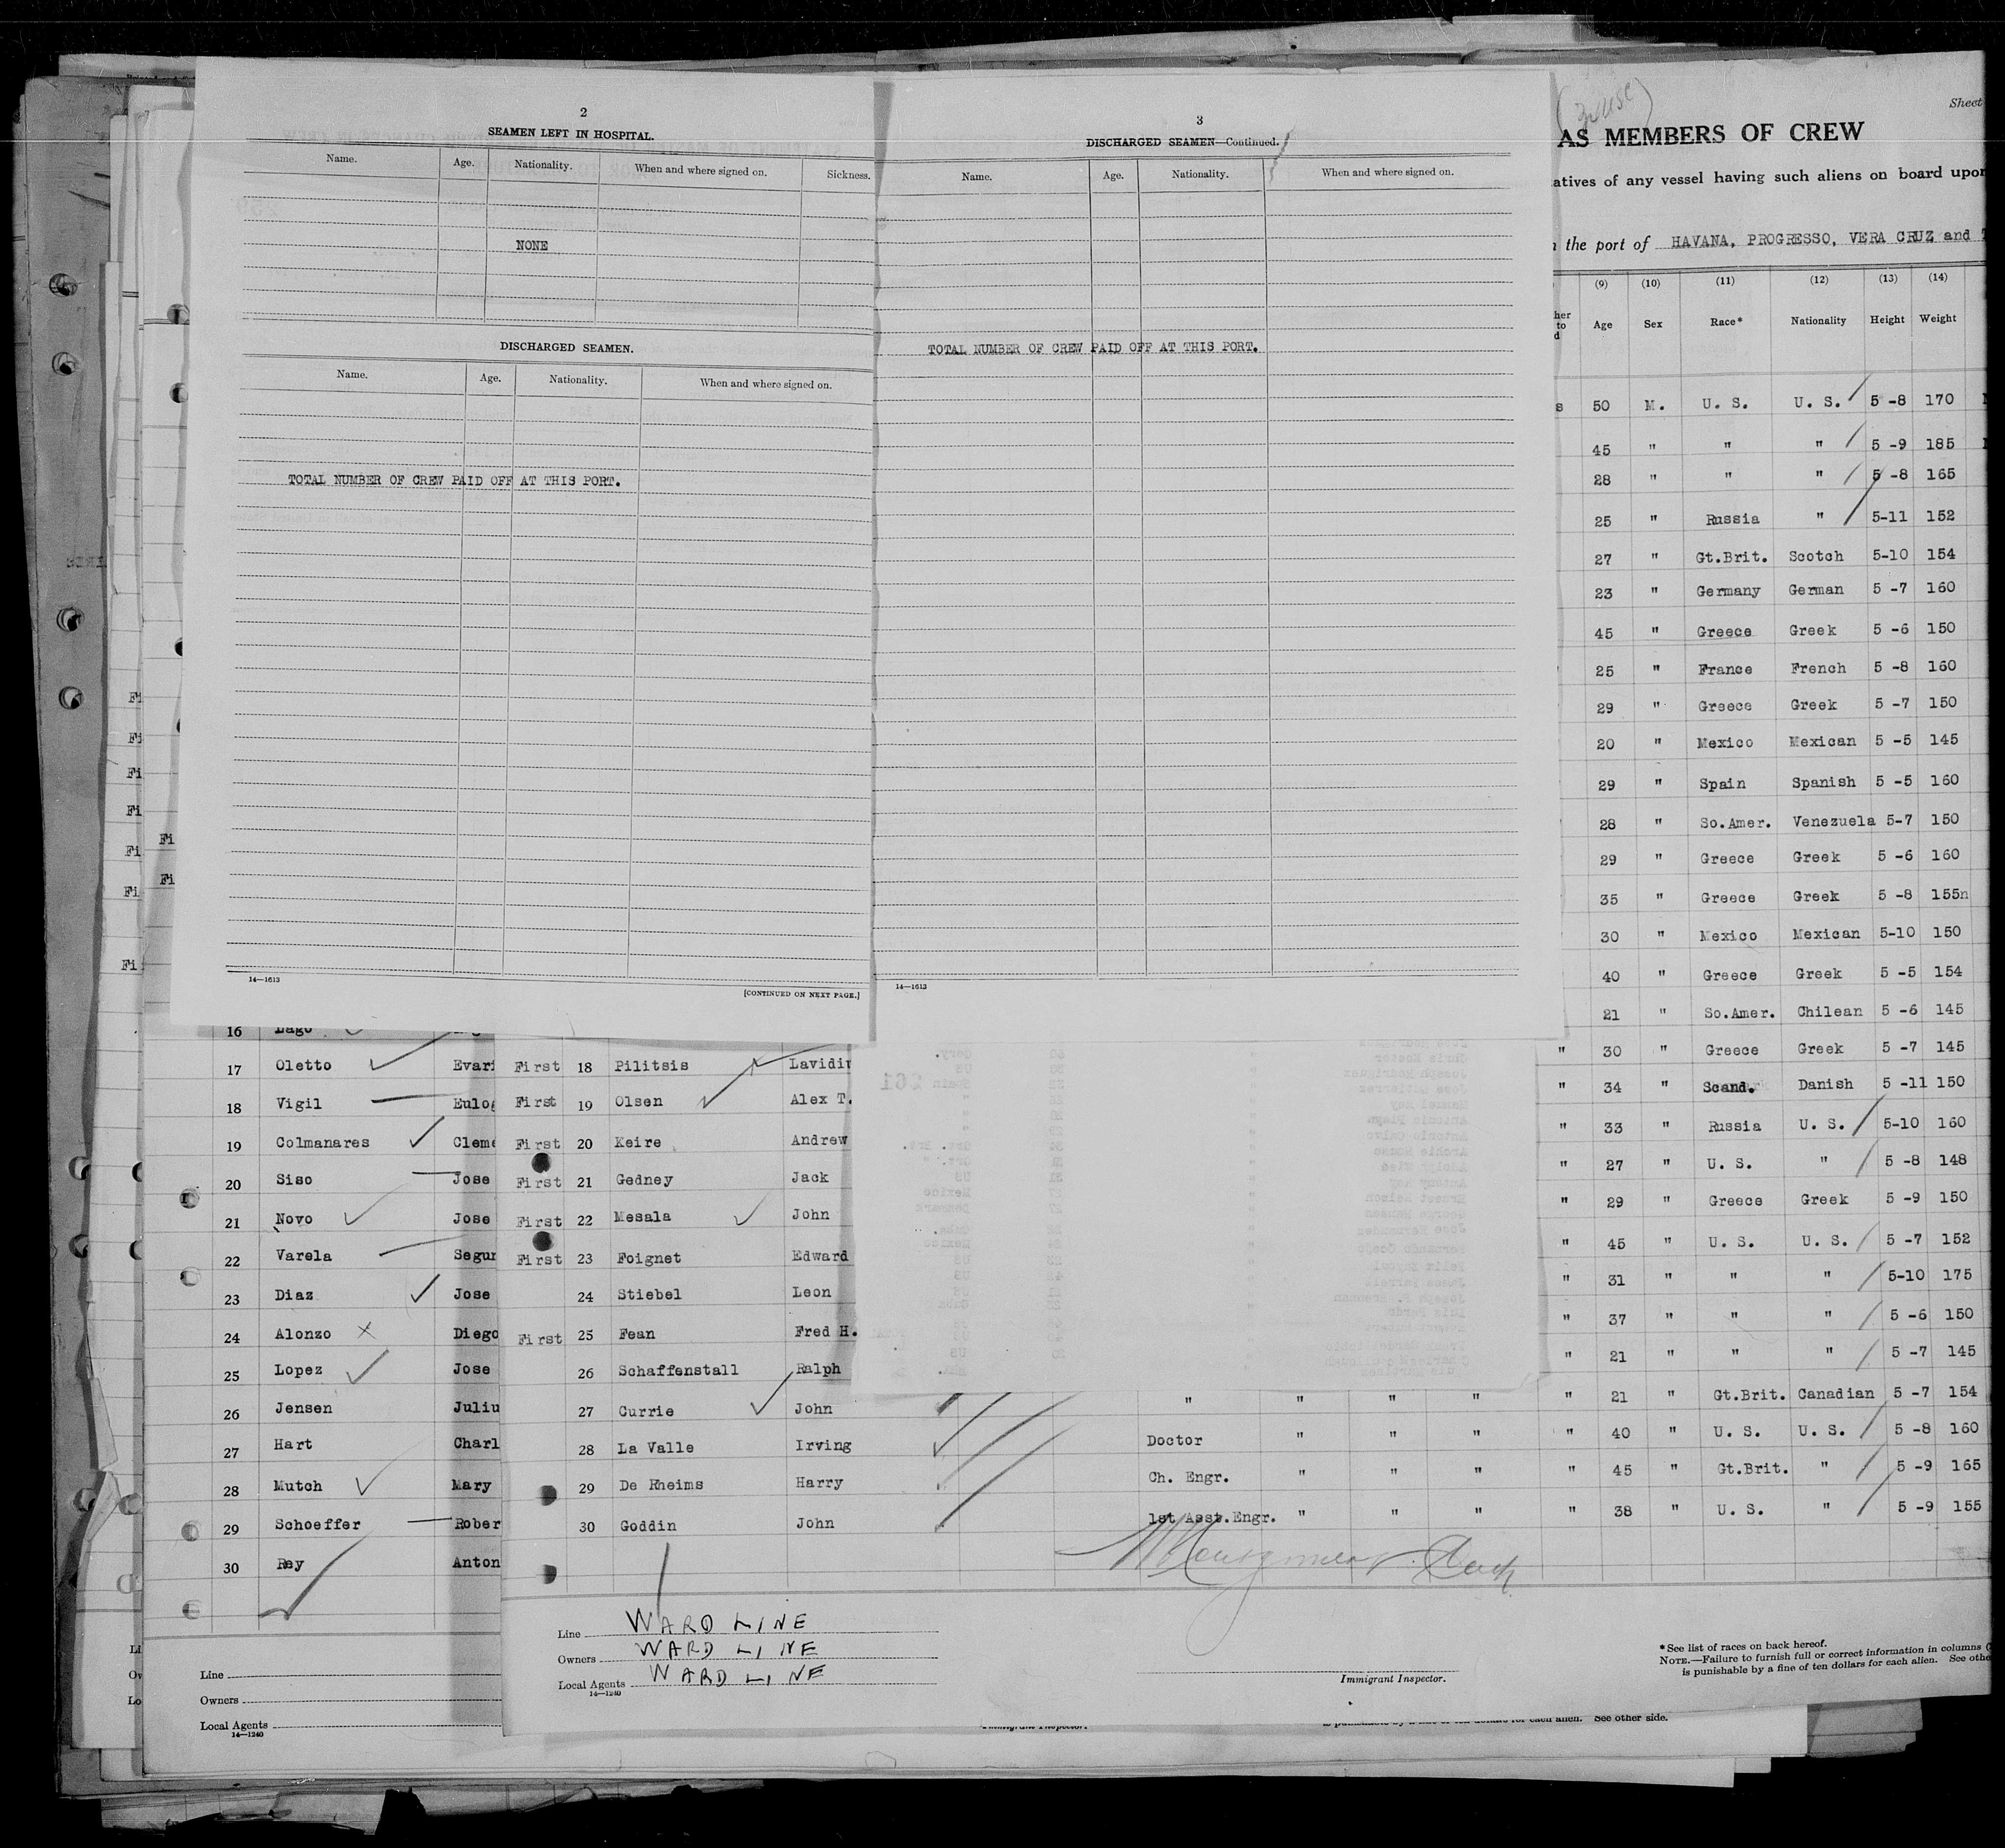 2
SEAMEN LEFT IN HOSPITAL.
Name. Age. Nationality. When and where signed on. Sickness.
NONE
DISCHARGED SEAMEN.
Name. Age. Nationality. When and where signed on.
TOTAL NUMBER OF CREW PAID OFF AT THIS PORT.
14—1613
[CONTINUED ON NEXT PAGE.]
3
DISCHARGED SEAMEN—Continued.
Name. Age. Nationality. When and where signed on.
TOTAL NUMBER OF CREW PAID OFF AT THIS PORT.
14—1613
Sheet
AS MEMBERS OF CREW
atives of any vessel having such aliens on board upon
the port of HAVANA, PROGRESSO, VERA CRUZ and
(9) (10) (11) (12) (13) (14)
Age Sex Race* Nationality Height Weight
50 M. U. S. U. S. 5 -8 170
45 " " " 5 -9 185
28 " " " 5 -8 165
25 " Russia " 5-11 152
27 " Gt.Brit. Scotch 5-10 154
23 " Germany German 5 -7 160
45 " Greece Greek 5 -6 150
25 " France French 5 -8 160
29 " Greece Greek 5 -7 150
20 " Mexico Mexican 5 -5 145
29 " Spain Spanish 5 -5 160
28 " So.Amer. Venezuela 5-7 150
29 " Greece Greek 5 -6 160
35 " Greece Greek 5 -8 155n
30 " Mexico Mexican 5-10 150
40 " Greece Greek 5 -5 154
21 " So.Amer. Chilean 5 -6 145
" 30 " Greece Greek 5 -7 145
" 34 " Scand. Danish 5 -11 150
" 33 " Russia U. S. 5-10 160
" 27 " U. S. " 5 -8 148
" 29 " Greece Greek 5 -9 150
" 45 " U. S. U. S. 5 -7 152
" 31 " " " 5-10 175
" 37 " " " 5 -6 150
" 21 " " " 5 -7 145
" " " " " 21 " Gt.Brit. Canadian 5 -7 154
Doctor " " " " 40 " U. S. U. S. 5 -8 160
Ch. Engr. " " " " 45 " Gt.Brit. " 5 -9 165
1st Asst.Engr. " " " " 38 " U. S. " 5 -9 155
16 Lago
17 Oletto Evari
18 Vigil Eulog
19 Colmanares Cleme
20 Siso Jose
21 Novo Jose
22 Varela Segun
23 Diaz Jose
24 Alonzo Diego
25 Lopez Jose
26 Jensen Juliu
27 Hart Charl
28 Mutch Mary
29 Schoeffer Rober
30 Rey Anton
First 18 Pilitsis Lavidi
First 19 Olsen Alex T.
First 20 Keire Andrew
First 21 Gedney Jack
First 22 Mesala John
First 23 Foignet Edward
24 Stiebel Leon
First 25 Fean Fred H.
26 Schaffenstall Ralph
27 Currie John
28 La Valle Irving
29 De Rheims Harry
30 Goddin John
Line WARD LINE
Owners WARD LINE
Local Agents WARD LINE
14—1240
Immigrant Inspector.
*See list of races on back hereof.
NOTE.—Failure to furnish full or correct information in columns
is punishable by a fine of ten dollars for each alien. See othe
Line
Owners
Local Agents
14—1240
Immigrant Inspector.
is punishable by a fine of ten dollars for each alien. See other side.